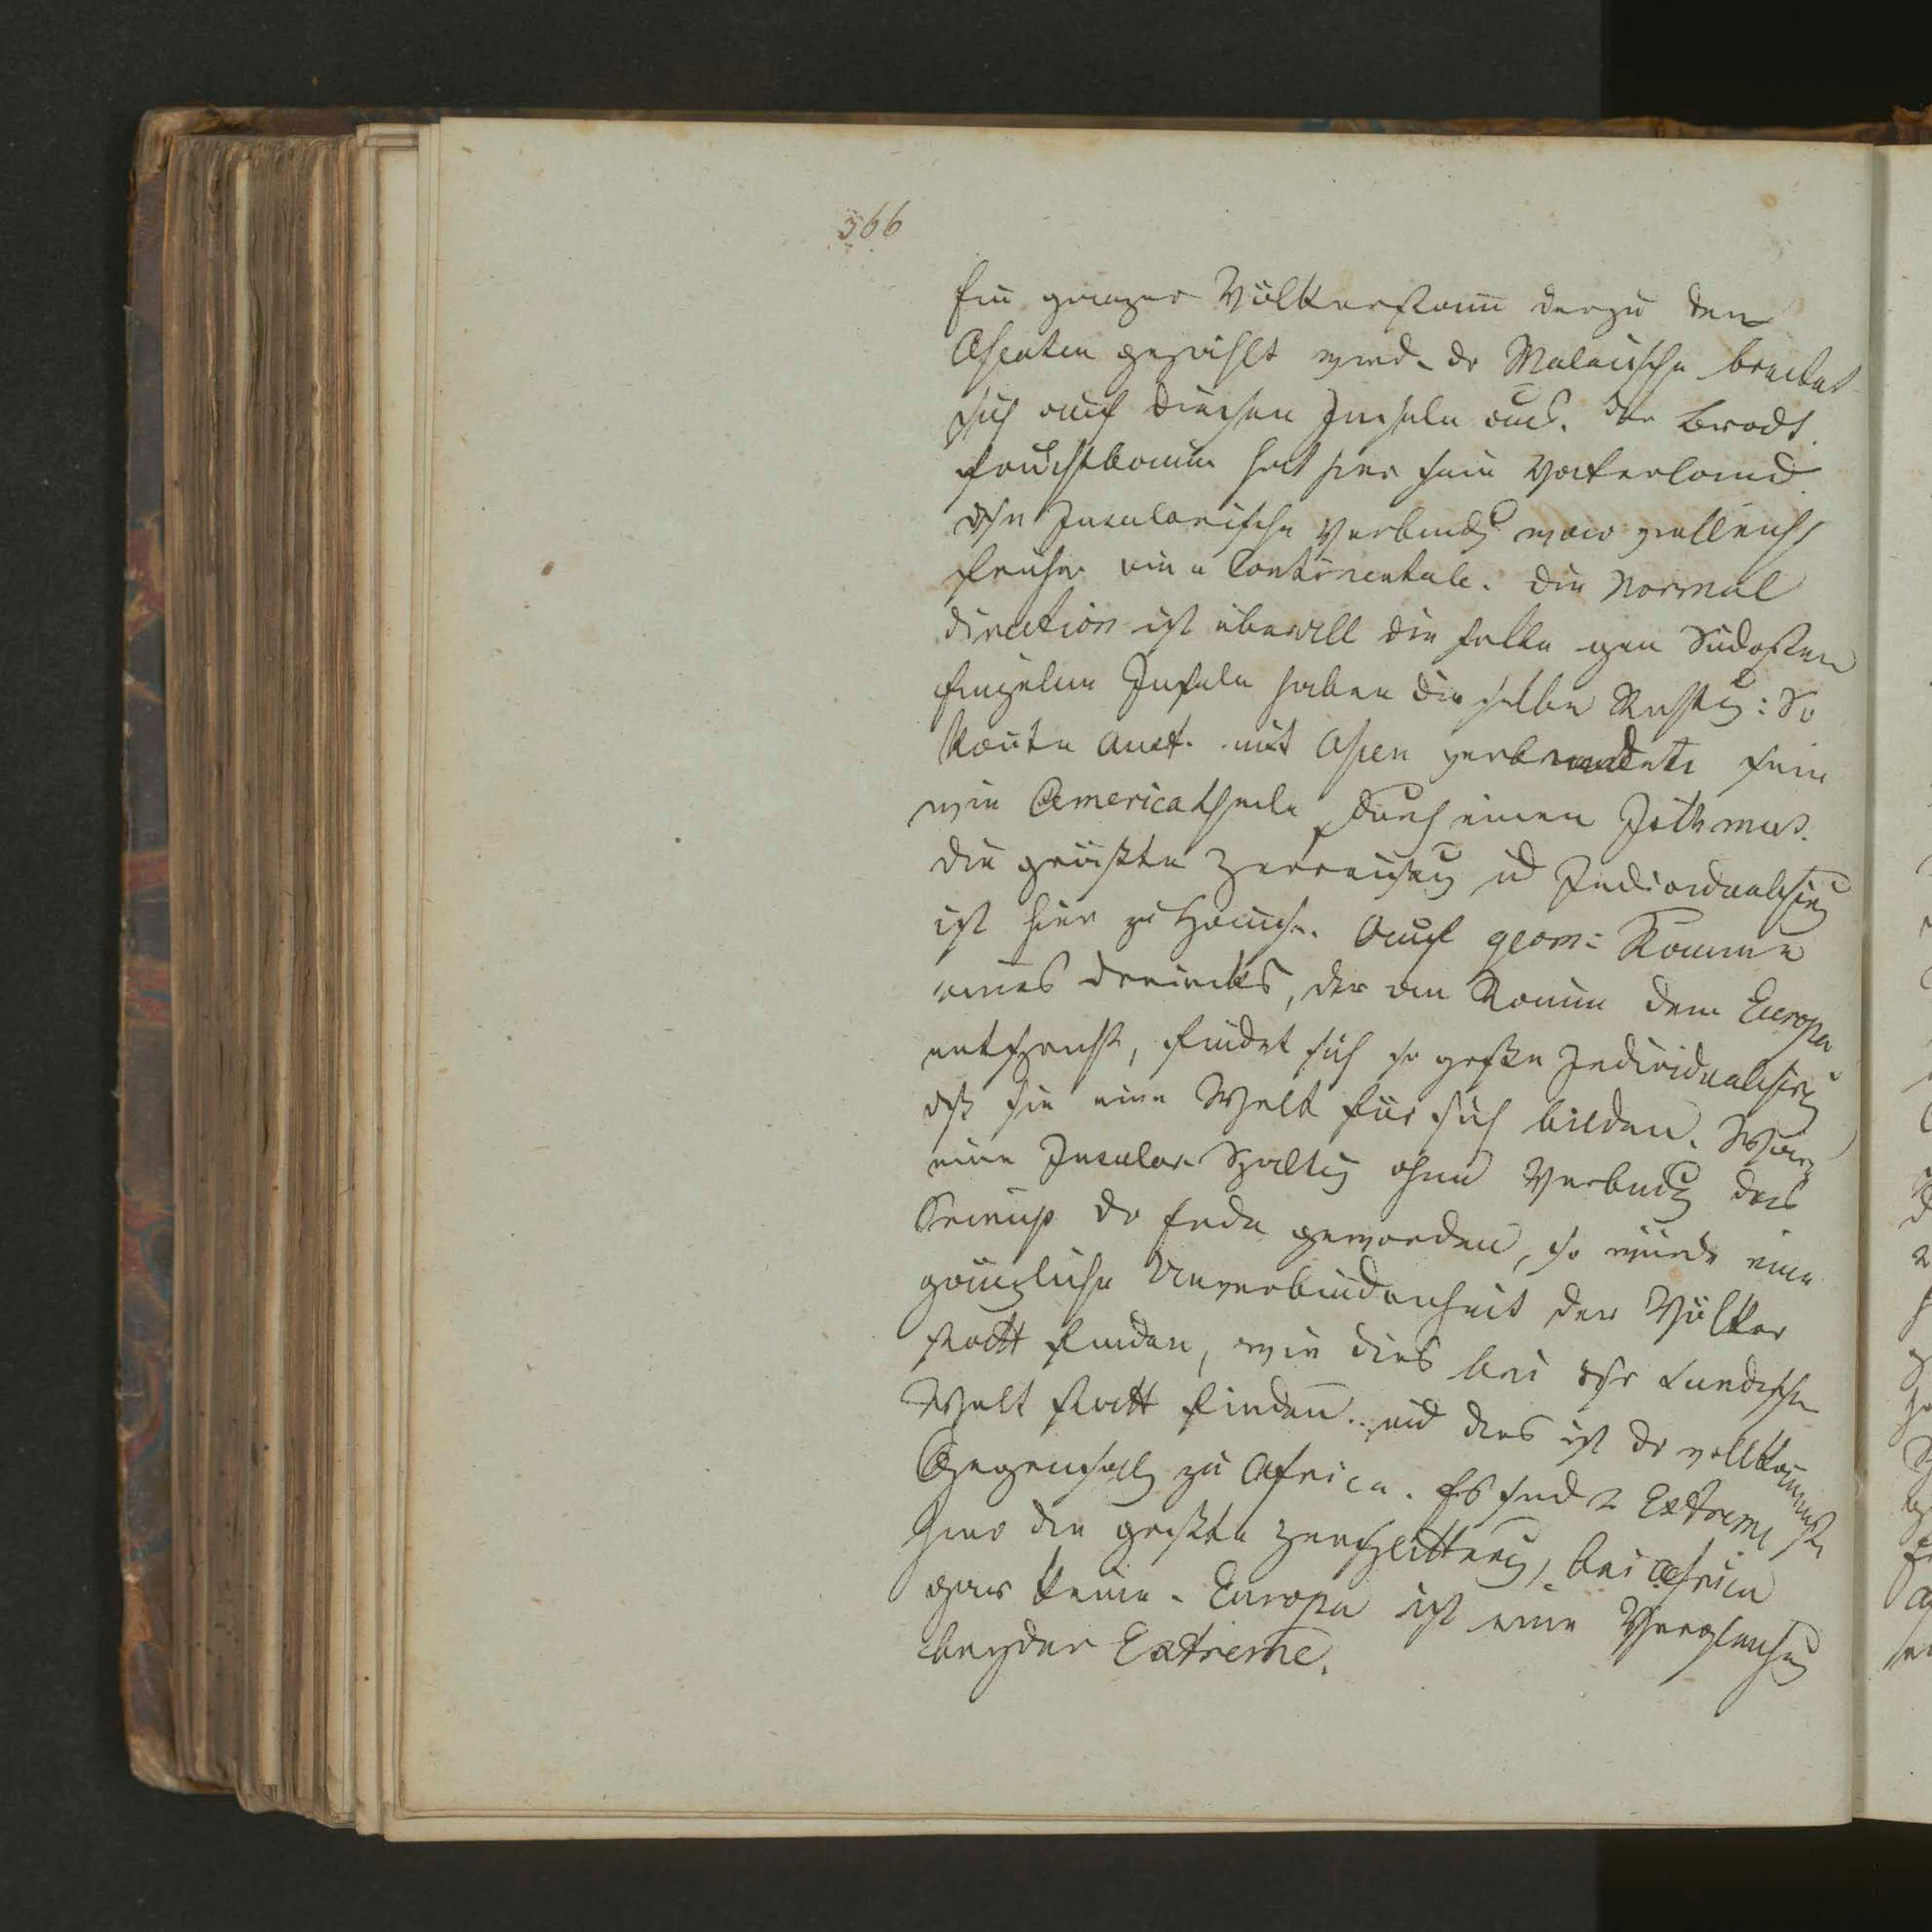 366
Ein ganzer Völkerstam̅ der zu den
Asiaten gezählt wird. dr Malaiische breitet
sich auf diesen Inseln aus. der Brodt
fruchtbaum hat hier sein Vaterland.
dise Insularische Verbindg war vielleicht
früher eine Continentale. die Normal
direction ist überall dieselbe gen Südosten
Einzelne Inseln haben dieselbe Richtg: So
konte Aust. mit Asien verbundete sein
wie Americatheile durch einen Isthmus.
die größte Zerreissug ud Individualisirg
ist hier zu Hause. Auf geom: Raume
eines dreiecks, der am Raum dem Europa
entspricht, findet sich so große Individualisirg
dß sie eine Welt für sich bilden. Wäre
eine Insulare Spaltg ohne Verbindg das
Princip dr Erde geworden, so würde eine
gänzliche Unverbundenheit der Völker
statt finden, wie dies bei dsr Sundischen
Welt statt finden. und dies ist dr vollkom̅enste
Gegensatz zu Africa. Es sind 2 Extreme
hier die größte Zersplitterug, bei Africa
gar keine. Europa ist eine Vergleichug
beyder Extreme.